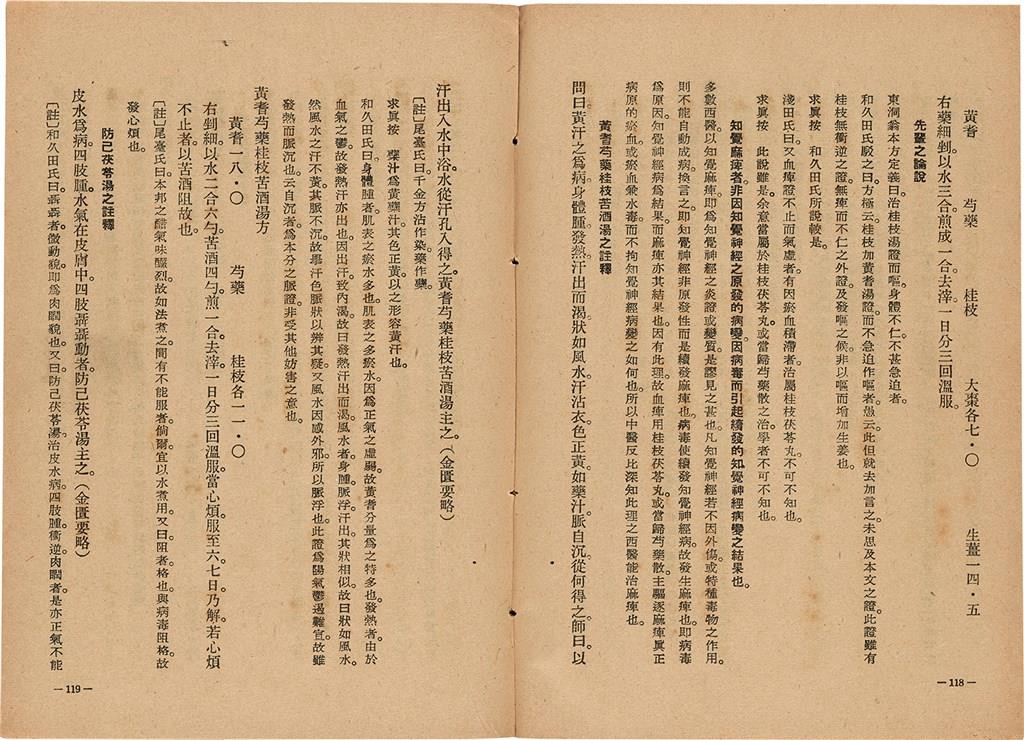 黃耆　芍藥　桂枝　大棗各七·〇　生薑一四·五
右藥細剉以水三合煎成一合去滓一日分三回溫服。
先輩之論說
東洞翁本方定義曰治桂枝湯證而嘔身體不仁不甚急迫者。
和久田氏駁之曰方極云桂枝加黃耆湯證而不急迫作嘔者愚云此但就去加言之未思及本文之證此證雖有
桂枝無衝逆之證無痺而不仁之外證及發嘔之候非以嘔而增加生姜也。
求眞按　和久田氏所說較是。
淺田氏曰又血痺證不止而氣虛者有因瘀血積滯者治屬桂枝茯苓丸不可不知也。
求眞按　此說雖是余意當屬於桂枝茯苓丸或當歸芍藥散之治學者不可不知也。
知覺麻痺者非因知覺神經之原發的病變因病毒而引起續發的知覺神經病變之結果也。
多數西醫以知覺麻痺即爲知覺神經之炎證或變質是謬見之甚也凡知覺神經若不因外傷或特種毒物之作用。
則不能自動成病換言之即知覺神經非原發性而是續發麻痺也病毒使續發知覺神經病故發生麻痺也即病毒
爲原因知覺神經病爲結果而麻痺亦其結果也因有此理故血痺用桂枝茯苓丸或當歸芍藥散主驅逐麻痺眞正
病原的瘀血或瘀血兼水毒而不拘知覺神經病變之如何也所以中醫反比深知此理之西醫能治麻痺也。
黃耆芍藥桂枝苦酒湯之註釋
問曰黃汗之爲病身體腫發熱汗出而渴狀如風水汗沾衣色正黃如藥汁脈自沉從何得之師曰以
—118—
汗出入水中浴水從汗孔入得之黃耆芍藥桂枝苦酒湯主之。(金匱要略)
〔註〕尾臺氏曰千金方沾作染藥作蘗。
求眞按　蘗汁爲黃蘗汁其色正黃以之形容黃汗也。
和久田氏曰身體腫者肌表之瘀水多也肌表之多瘀水因爲正氣之虛弱故黃耆分量爲之特多也發熱者由於
血氣之鬱故發熱汗亦出也因出汗致內渴故曰發熱汗出而渴風水者身腫脈浮汗出其狀相似故曰狀如風水。
然風水之汗不黃其脈不沉故舉汗色脈狀以辨其疑又風水因感外邪所以脈浮也此證爲陽氣鬱遏難宣故雖
發熱而脈沉也云自沉者爲本分之脈證非受其他妨害之意也。
黃耆芍藥桂枝苦酒湯方
黃耆一八·〇　芍藥　桂枝各一一·〇
右剉細以水二合六勺苦酒四勺煎一合去滓一日分三回溫服當心煩服至六七日乃解若心煩
不止者以苦酒阻故也。
〔註〕尾臺氏曰本邦之醋氣味釅烈故如法煮之間有不能服者倘爾宜以水煮用又曰阻者格也與病毒阻格故
發心煩也。
防己茯苓湯之註釋
皮水爲病四肢腫水氣在皮膚中四肢聶聶動者防己茯苓湯主之。(金匱要略)
〔註〕和久田氏曰聶聶者微動貌即爲肉瞤貌也又曰防己茯苓湯治皮水病四肢腫衝逆肉瞤者是亦正氣不能
—119—